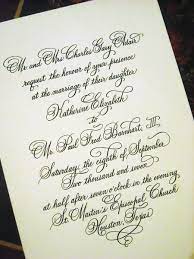 Mr. and Mrs. Charles Gary Adair
request the honour of your presence
at the marriage of their daughter
Katherine Elizabeth
to
Mr. Paul Fred Barnhart, III
Saturday, the eighth of September
Two thousand and seven
at half after seven o'clock in the evening
St. Martin's Episcopal Church
Houston, Texas